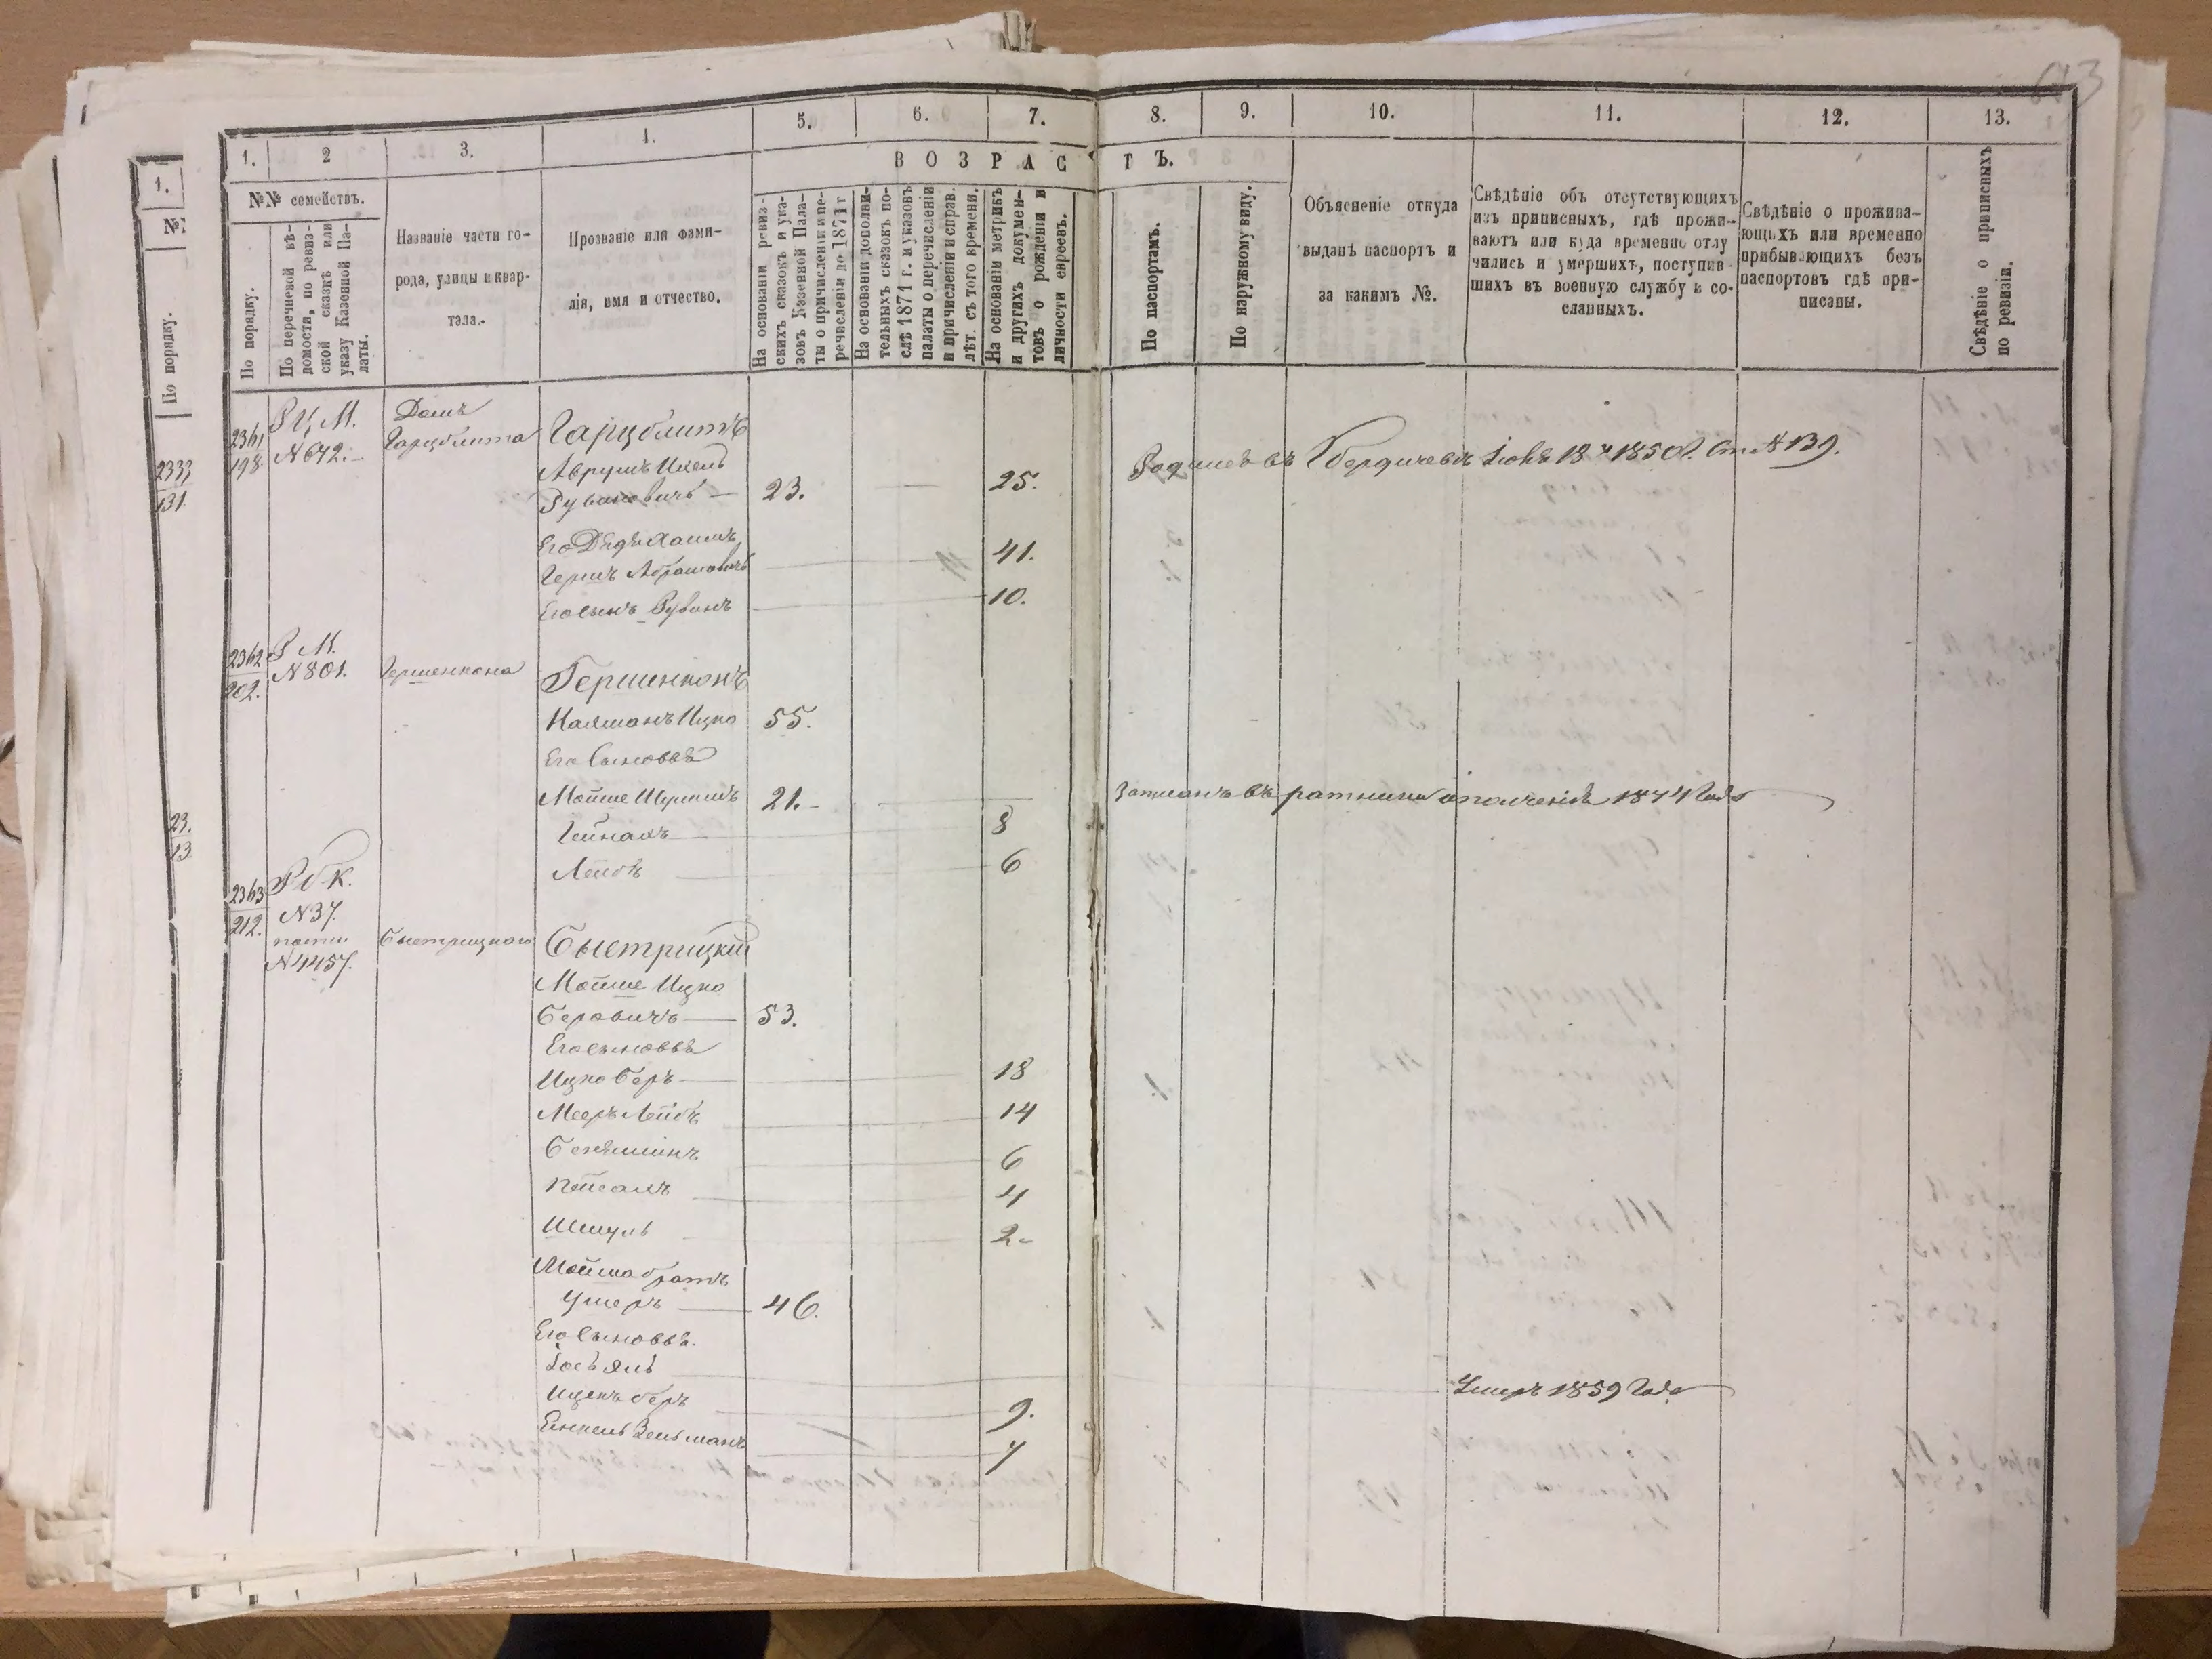 643
1.
№
По порядку.
2333
131.
23.
13
1. 2 3. 4. 5. 6. 7. 8. 9. 10. 11. 12. 13.
ВОЗРАСТЪ.
№№ семействъ.
По порядку.
По перечневой вѣ-
домости, по ревиз-
ской сказкѣ или
указу Казенной Па-
латы.
Названіе части го-
рода, улицы и квар-
тала.
Прозваніе или фами-
лія, имя и отчество.
На основаніи ревиз-
скихъ сказокъ и ука-
зовъ Казенной Пала-
ты о причисленіи и пе-
речисленіи до 1871 г
На основаніи дополни-
тельныхъ сказокъ по-
слѣ 1871 г. и указовъ
палаты о перечисленіи
и причисленіи и справ.
лѣт. съ того времени.
На основаніи метрикъ
и другихъ докумен-
товъ о рожденіи и
личности евреевъ.
По паспортамъ.
По наружному виду.
Объясненіе откуда
выданъ паспортъ и
за какимъ №.
Свѣдѣніе объ отсутствующихъ
изъ приписныхъ, гдѣ прожи-
ваютъ или куда временно отлу
чились и умершихъ, поступив-
шихъ въ военную службу и со-
сланныхъ.
Свѣдѣніе о прожива-
ющихъ или временно
прибывающихъ безъ
паспортовъ гдѣ при-
писаны.
Свѣдѣніе о приписныхъ
по ревизіи.
2361
198.
Р Ц М.
№ 642.
Домъ
Гарцблита
Гарцблитъ
Аврумъ Ихель
Рувиновичъ — 23. — 25. Родился въ Бердичевѣ Іюня 18 1850 г. Ст. № 139.
Его Дядя Хаимъ
Гершъ Абрамовичъ — 41.
Его сынъ Рувинъ — 10.
2362
202.
Р М.
№ 801.
Гершенкона
Гершенконъ
Калманъ Ицко 55.
Его Сыновья
Мойше Шулимъ 21. — Записанъ въ ратники ополченія 1874 года
Гейнахъ — 8
Лейбъ — 6
2363
212.
Р б К.
№ 37.
потом
№ 4457.
Быстрицкаго
Быстрицкій
Мойше Ицко
Беровичъ — 53.
Его сыновья
Ицко Беръ — 18
Мееръ Лейбъ — 14
Беніяминъ — 6
Пейсахъ — 4
Шмуль — 2
Мойша братъ
Ушеръ — 46.
Его Сыновья.
Іосъ Яль — Умеръ 1859 года
Ицекъ беръ — 9.
Енкель Зельманъ — 7